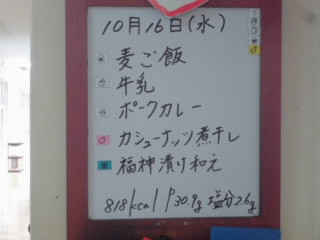 10月16日(水)
麦ご飯
牛乳
ポークカレー
カシューナッツ煮干し
福神漬け和え
818kcal P30.9g 塩分2.6g